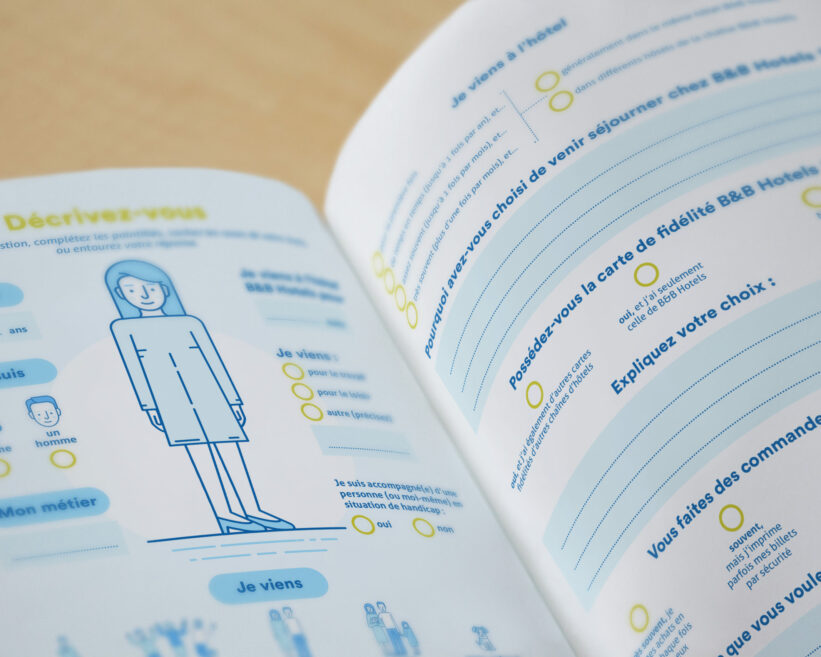 Décrivez-vous
estion, complétez les pointillés,
ou entourez votre réponse.
ans
suis
un
homme
me
Mon métier
Je viens à l'hôtel
B&B Hotels pour
Je viens :
pour le travail
pour le loisir
autre (précisez)
Je suis accompagné(e) d'une
personne (ou moi-même) en
situation de handicap :
oui
non
Je viens
Je viens à l'hôtel
généralement dans le même hôtel B&B Hotels
dans différents hôtels de la chaîne B&B Hotels
de temps en temps (jusqu'à 1 fois par an), et...
assez souvent (jusqu'à 1 fois par mois), et...
très souvent (plus d'une fois par mois), et...
Pourquoi avez-vous choisi de venir séjourner chez B&B Hotels
Possédez-vous la carte de fidélité B&B Hotels
oui, et j'ai seulement
celle de B&B Hotels
oui, et j'ai également d'autres cartes
fidélités d'autres chaînes d'hôtels
Expliquez votre choix :
Vous faites des commande
souvent,
mais j'imprime
parfois mes billets
par sécurité
souvent, je
es achats en
haque fois
eux
que vous voule